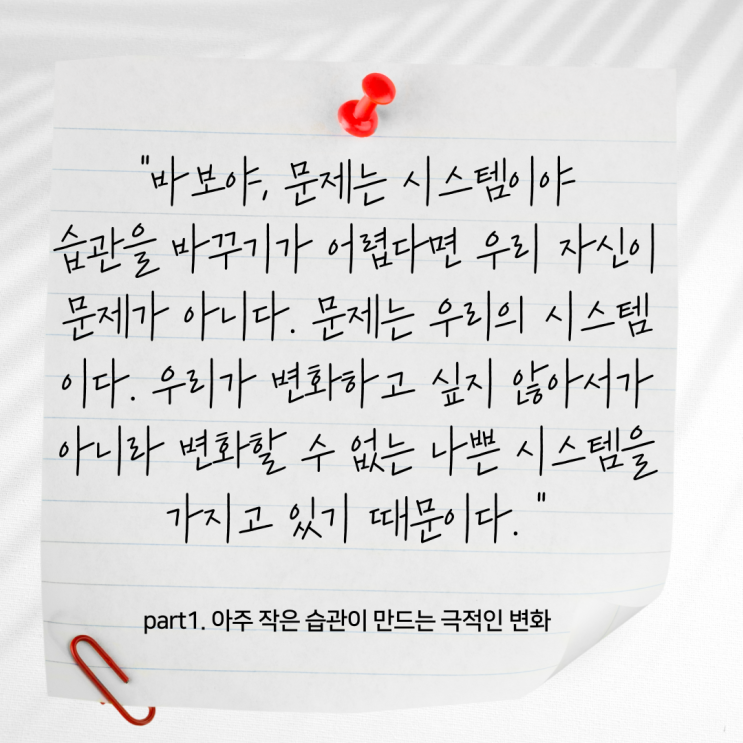 "바보야, 문제는 시스템이야
습관을 바꾸기가 어렵다면 우리 자신이
문제가 아니다. 문제는 우리의 시스템
이다. 우리가 변화하고 싶지 않아서가
아니라 변화할 수 없는 나쁜 시스템을
가지고 있기 때문이다. "
part1. 아주 작은 습관이 만드는 극적인 변화